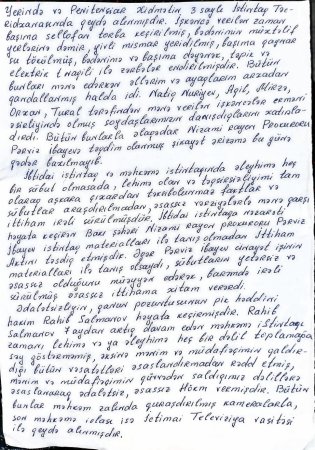 Yerində və Penitensiar Xidmətin 3 saylı İstintaq Təc-
ridxanasında qeydə alınmışdır. İşgəncə verilən zaman
başıma sellofan torba keçirilmiş, bədənimin müxtəlif
yerlərinə dəmir, girli mismar yeridilmiş, başıma qaynar
su tökülmüş, bədənimə və başıma dəyənək, təpik və
elektrik naqili ilə zərbələr endirilmişdir. Bütün
bunları mənə edərkən əllərim və ayaqlarım arxadan
qandallanmış halda idi. Natiq Nuriyev, Aqil, Mirzə,
Orxan, Tural tərəfindən mənə verilən işgəncələr erməni
əsirliyində olmuş soydaşlarımızın danışdıqlarını xatırla-
dırdı. Bütün bunlarla əlaqədar Nizami rayon Prokuroru
Pərviz İbayevə təqdim olunmuş şikayət ərizəmə bu günə
qədər baxılmayıb.
İbtidai istintaq və məhkəmə istintaqında əleyhimə heç
bir sübut olmasada, lehimə olan və təqsirsizliyimi tam
olaraq aşkara çıxardan təkzibolunmaz faktlar və
sübutlar araşdırılmamış, əsassız vəziyyətdə mənə qarşı
ittiham irəli sürülmüşdür. İbtidai istintaqa nəzarəti
həyata keçirən Bakı şəhəri Nizami rayon prokuroru Pərviz
İbayev istintaq materialları ilə tanış olmadan İttiham
Aktını təsdiq etmişdir. Əgər Pərviz İbayev cinayət işinin
materialları ilə tanış olsaydı, sübutların yetərsiz və
əsassız olduğunu müəyyən edərək, barəmdə irəli
sürülmüş əsassız ittihama xitam verərdi.
Ədalətsizliyin, qanun pozuntusunun pik həddini
hakim Rahib Salmanov həyata keçirmişdir. Rahib
Salmanov 7 aydan artıq davam edən məhkəmə istintaqı
zamanı, lehimə və ya əleyhimə heç bir dəlil toplamağa
səy göstərməmiş, əksinə mənim və müdafiəçimin qaldır-
dığı bütün vəsatətləri əsaslandırmadan rədd etmiş,
mənim və müdafiəçimin qüvvədən saldığımız dəlillərə
əsaslanaraq ədalətsiz, əsassız Hökm vermişdir. Bütün
bunlar məhkəmə zalında quraşdırılmış kameralarla,
son məhkəmə iclası isə İctimai Televiziya vasitəsi
ilə qeydə alınmışdır.